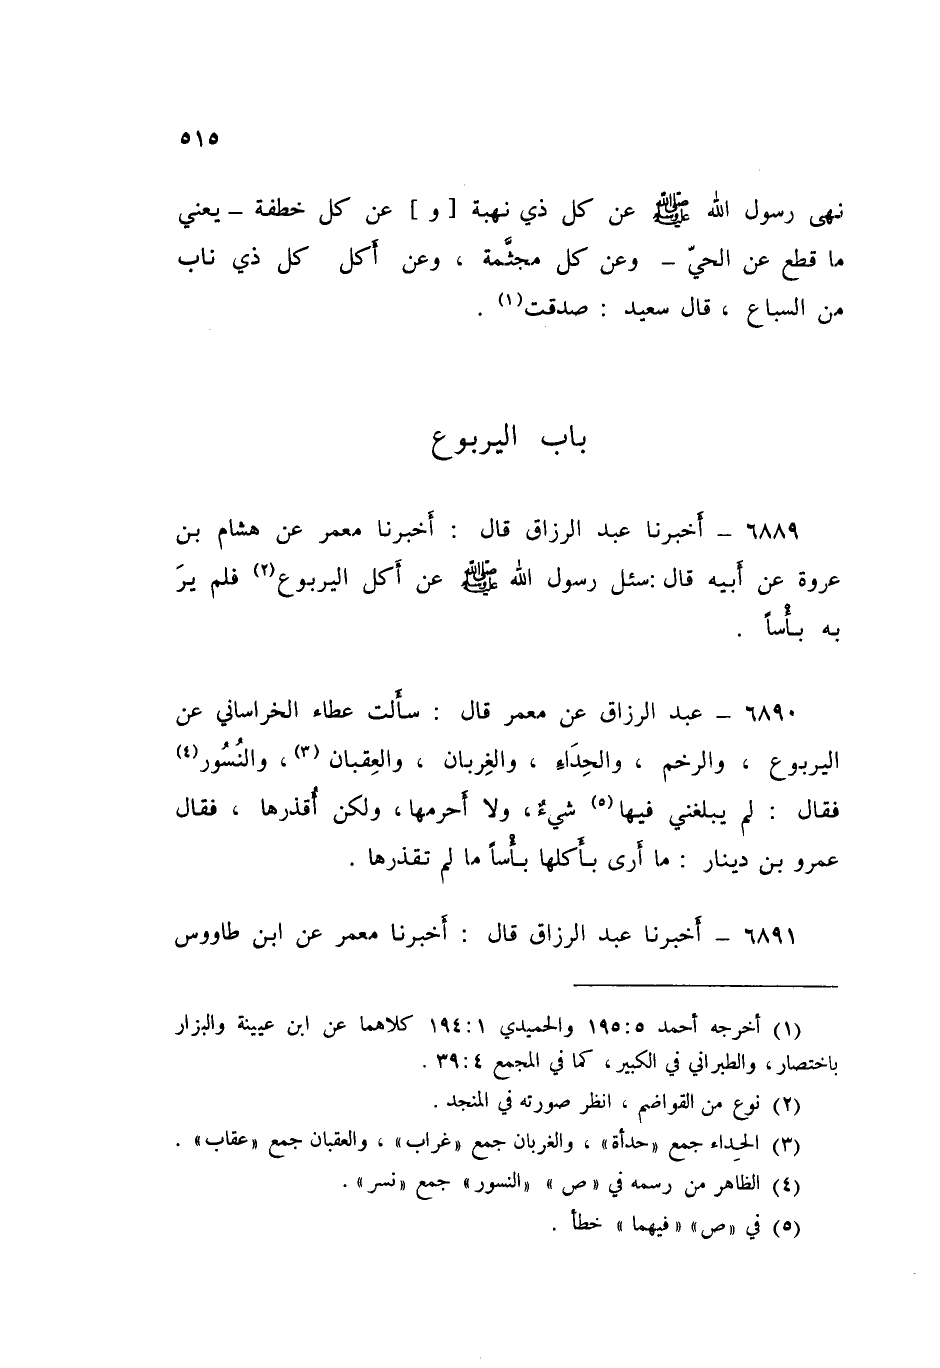 ٥١٥
نهى رسول الله ﷺ عن كل ذي نهبة [ و ] عن كل خطفة – يعني
ما قطع عن الحيّ – وعن كل مجثَّمة ، وعن أكل كل ذي ناب
من السباع ، قال سعيد : صدقت(١) .
باب اليربوع
٦٨٨٩ – أخبرنا عبد الرزاق قال : أخبرنا معمر عن هشام بن
عروة عن أبيه قال :سئل رسول الله ﷺ عن أكل اليربوع(٢) فلم يرَ
به بأْساً .
٦٨٩٠ – عبد الرزاق عن معمر قال : سألت عطاء الخراساني عن
اليربوع ، والرخم ، والحِدَاءِ ، والغِربان ، والعِقبان (٣)، والنُسُور(٤)
فقال : لم يبلغني فيها(٥) شيءٌ، ولا أحرمها، ولكن أُقذرها ، فقال
عمرو بن دينار : ما أرى بأكلها بأْساً ما لم تقذرها .
٦٨٩١ – أخبرنا عبد الرزاق قال : أخبرنا معمر عن ابن طاووس
(١) أخرجه أحمد ٥:١٩٥ والحميدي ١:١٩٤ كلاهما عن ابن عيينة والبزار
باختصار، والطبراني في الكبير، كما في المجمع ٤:٣٩ .
(٢) نوع من القواضم ، انظر صورته في المنجد .
(٣) الحِداء جمع «حدأة» ، والغربان جمع «غراب» ، والعقبان جمع «عقاب» .
(٤) الظاهر من رسمه في «ص » «النسور» جمع «نسر» .
(٥) في «ص» «فيهما » خطأ .